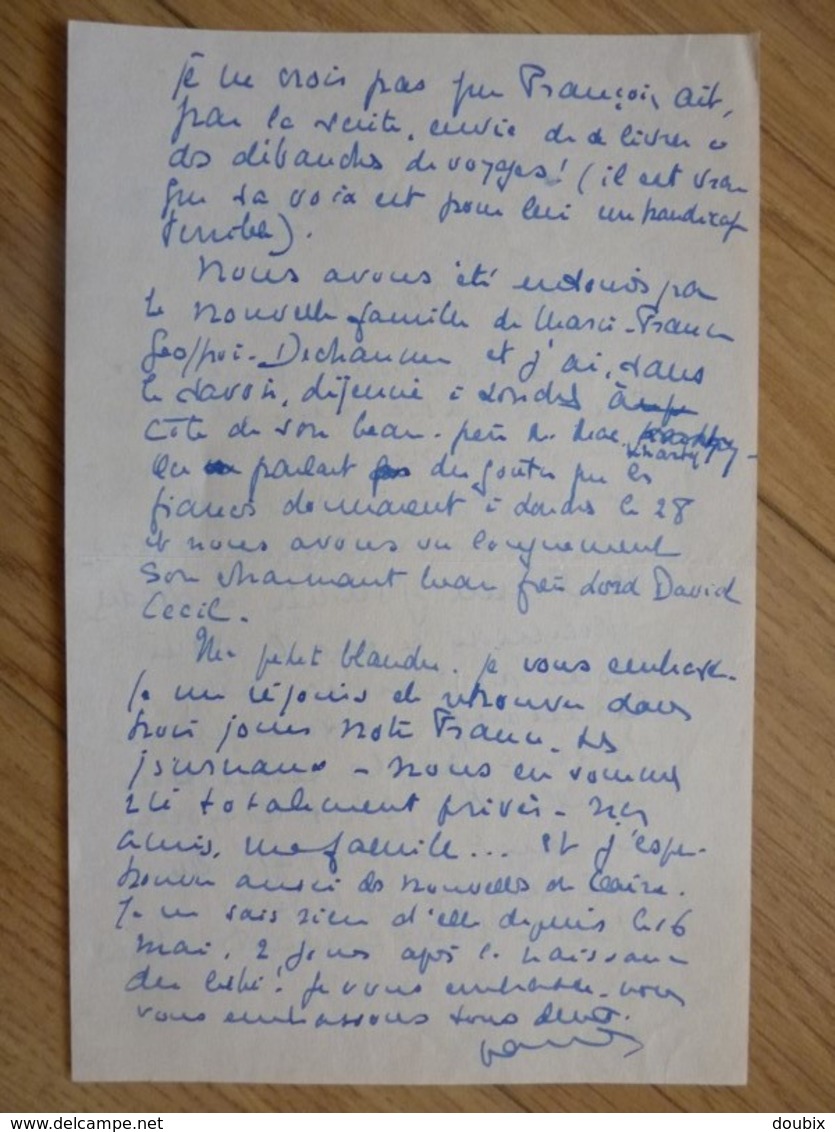 Je ne crois pas que François, ait,
par la suite, envie de se livrer à
des débauches de voyages! (il est vrai
que sa voix est pour lui un handicap
terrible).
Nous avons été entourés par
la nouvelle famille de Marie-France
et j'ai, sans
le savoir, déjeuné à Londres à
côté de son beau-père M. Mac
On parlait du goûter que les
fiancés donnaient à Londres le 28
et nous avons vu longuement
son charmant beau frère Lord David
Cecil.
petit Blandin. je vous embrasse.
Je me réjouis de retrouver dans
trois jours notre France. les
journaux - nous en sommes
été totalement privés - mes
amis, ma famille... et j'espère
trouver aussi des nouvelles de Claire.
Je ne sais rien d'elle depuis le 16
mai, 2 jours après la naissance
du bébé! Je vous embrasse. nous
vous embrassons tous deux.
doubix